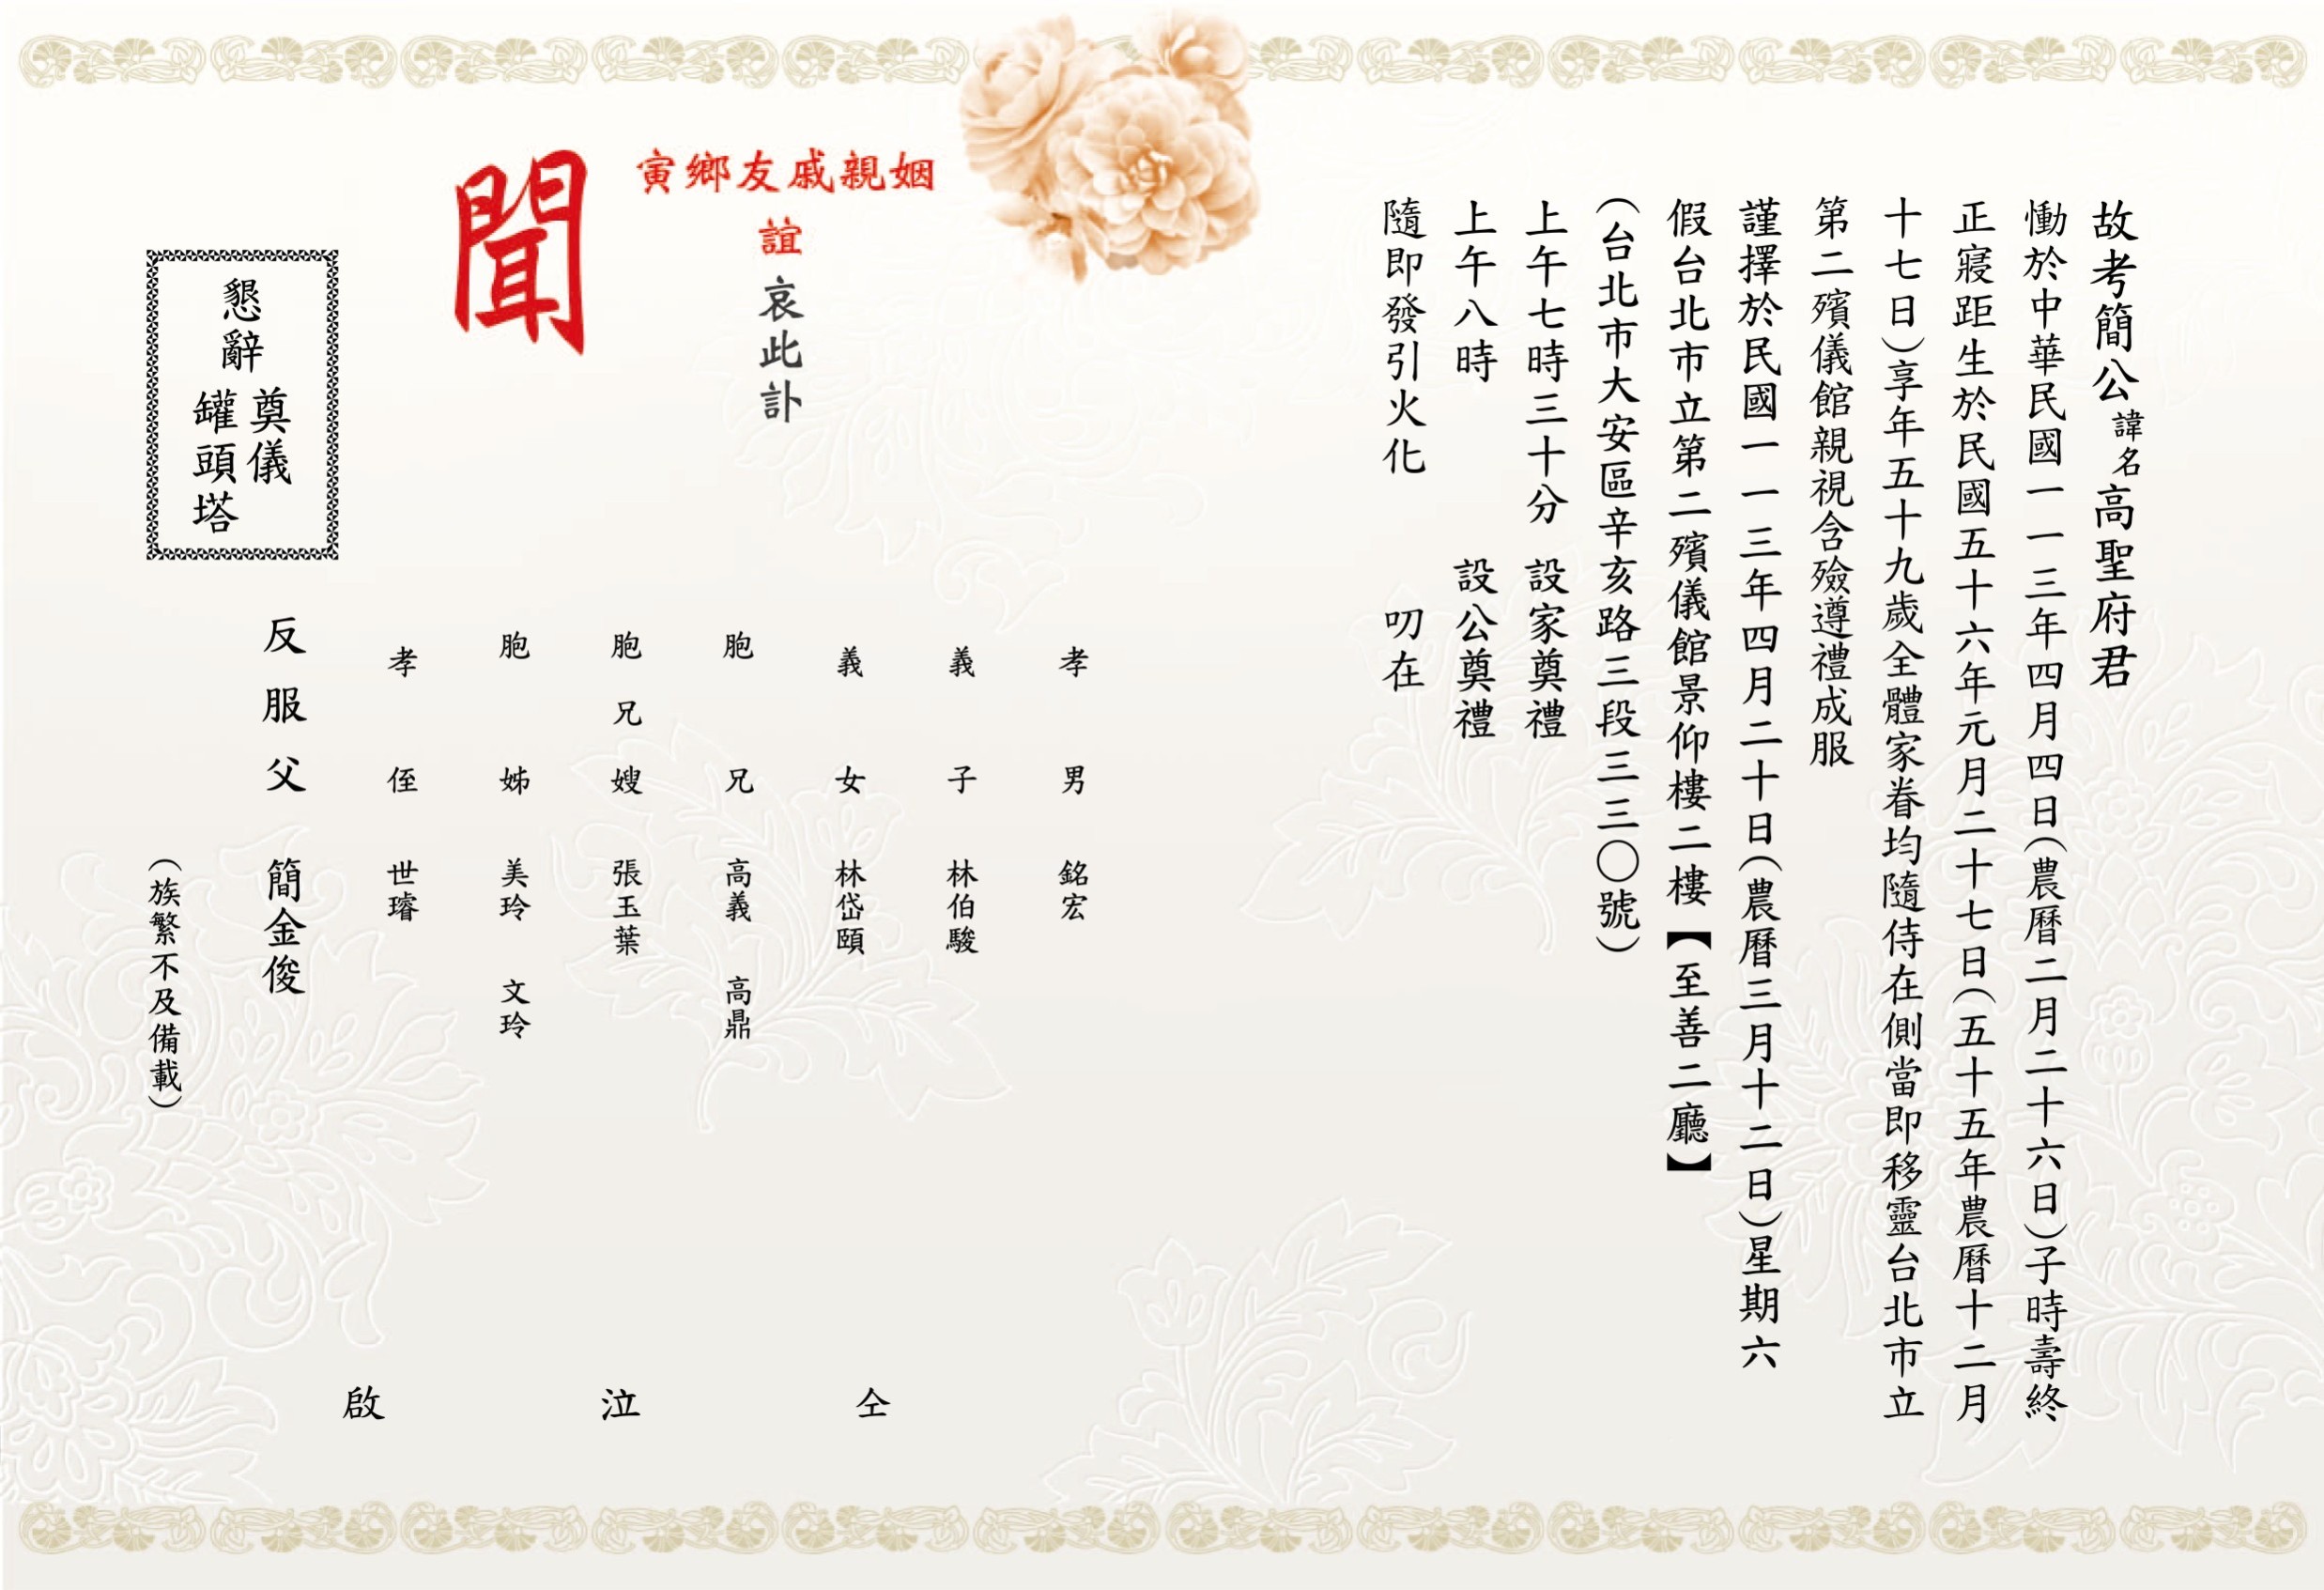 故考簡公諱名高聖府君
慟於中華民國一一三年四月四日(農曆二月二十六日)子時壽終
正寢距生於民國五十六年元月二十七日(五十五年農曆十二月
十七日)享年五十九歲全體家眷均隨侍在側當即移靈台北市立
第二殯儀館親視含殮遵禮成服
謹擇於民國一一三年四月二十日(農曆三月十二日)星期六
假台北市立第二殯儀館景仰樓二樓【至善二廳】
(台北市大安區辛亥路三段三三〇號)
上午七時三十分 設家奠禮
上午八時 設公奠禮
隨即發引火化 叨在
寅鄉友戚親姻
誼
哀此訃
聞
孝男 銘宏
義子 林伯駿
義女 林岱頤
胞兄 高義 高鼎
胞兄嫂 張玉葉
胞姊 美玲 文玲
孝侄 世璿
反服父 簡金俊
(族繁不及備載)
仝泣啟
懇辭
奠儀
罐頭塔